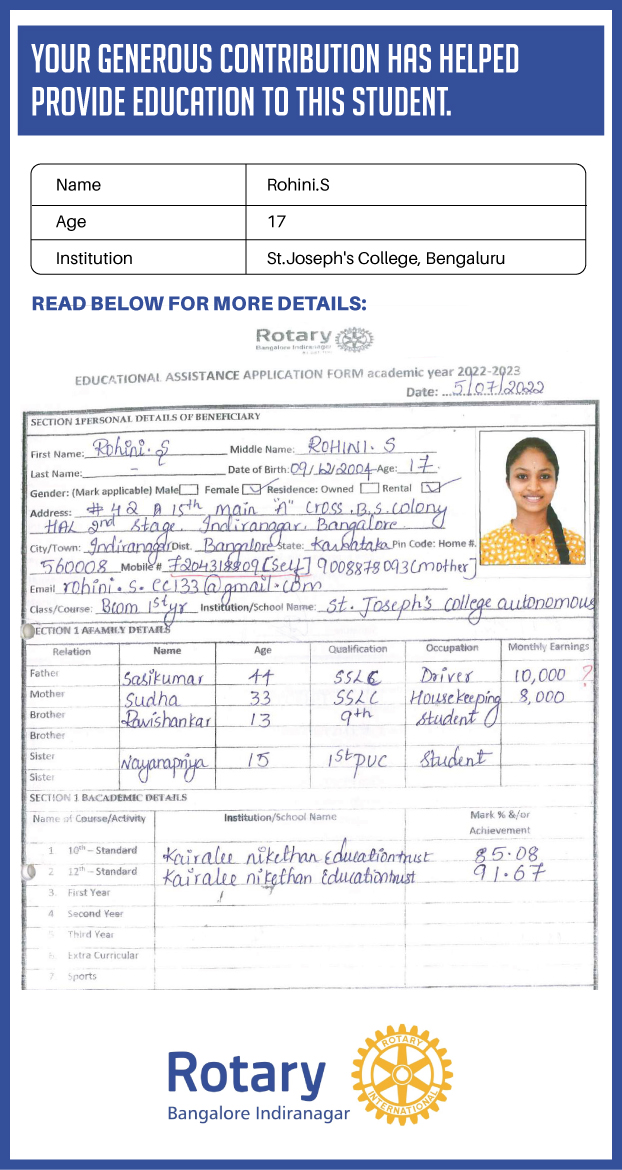 YOUR GENEROUS CONTRIBUTION HAS HELPED
PROVIDE EDUCATION TO THIS STUDENT.
Name Rohini.S
Age 17
Institution St.Joseph's College, Bengaluru
READ BELOW FOR MORE DETAILS:
Rotary
Bangalore Indiranagar
EDUCATIONAL ASSISTANCE APPLICATION FORM academic year 2022-2023
Date: ...5/07/2022
SECTION 1PERSONAL DETAILS OF BENEFICIARY
First Name: Rohini.S Middle Name: ROHINI.S
Last Name: - Date of Birth: 09/12/2004 Age: 17
Gender: (Mark applicable) Male Female Residence: Owned Rental
Address: #42 A 15th main "A" cross, B.S. colony
HAL 2nd Stage, Indiranagar, Bangalore.
City/Town: Indiranagar Dist. Bangalore State: Karnataka Pin Code: Home #.
560008 Mobile # 7204318809 [Self] 9008878093 (mother]
Email rohini.s.cc133@gmail.com
Class/Course: Bcom 1st yr Institution/School Name: St. Joseph's college autonomous
SECTION 1 AFAMILY DETAILS
Relation Name Age Qualification Occupation Monthly Earnings
Father Sasikumar 44 SSLC Driver 10,000 ?
Mother Sudha 33 SSLC Housekeeping 8,000
Brother Ravishankar 13 9th Student
Brother
Sister Nayanapriya 15 1st PUC Student
Sister
SECTION 1 BACADEMIC DETAILS
Name of Course/Activity Institution/School Name Mark % &/or
Achievement
1 10th – Standard Kairalee nikethan Education trust 85.08
2 12th – Standard Kairalee nikethan Education trust 91.67
3 First Year
4 Second Year
5 Third Year
6 Extra Curricular
7 Sports
Rotary
Bangalore Indiranagar
ROTARY
INTERNATIONAL